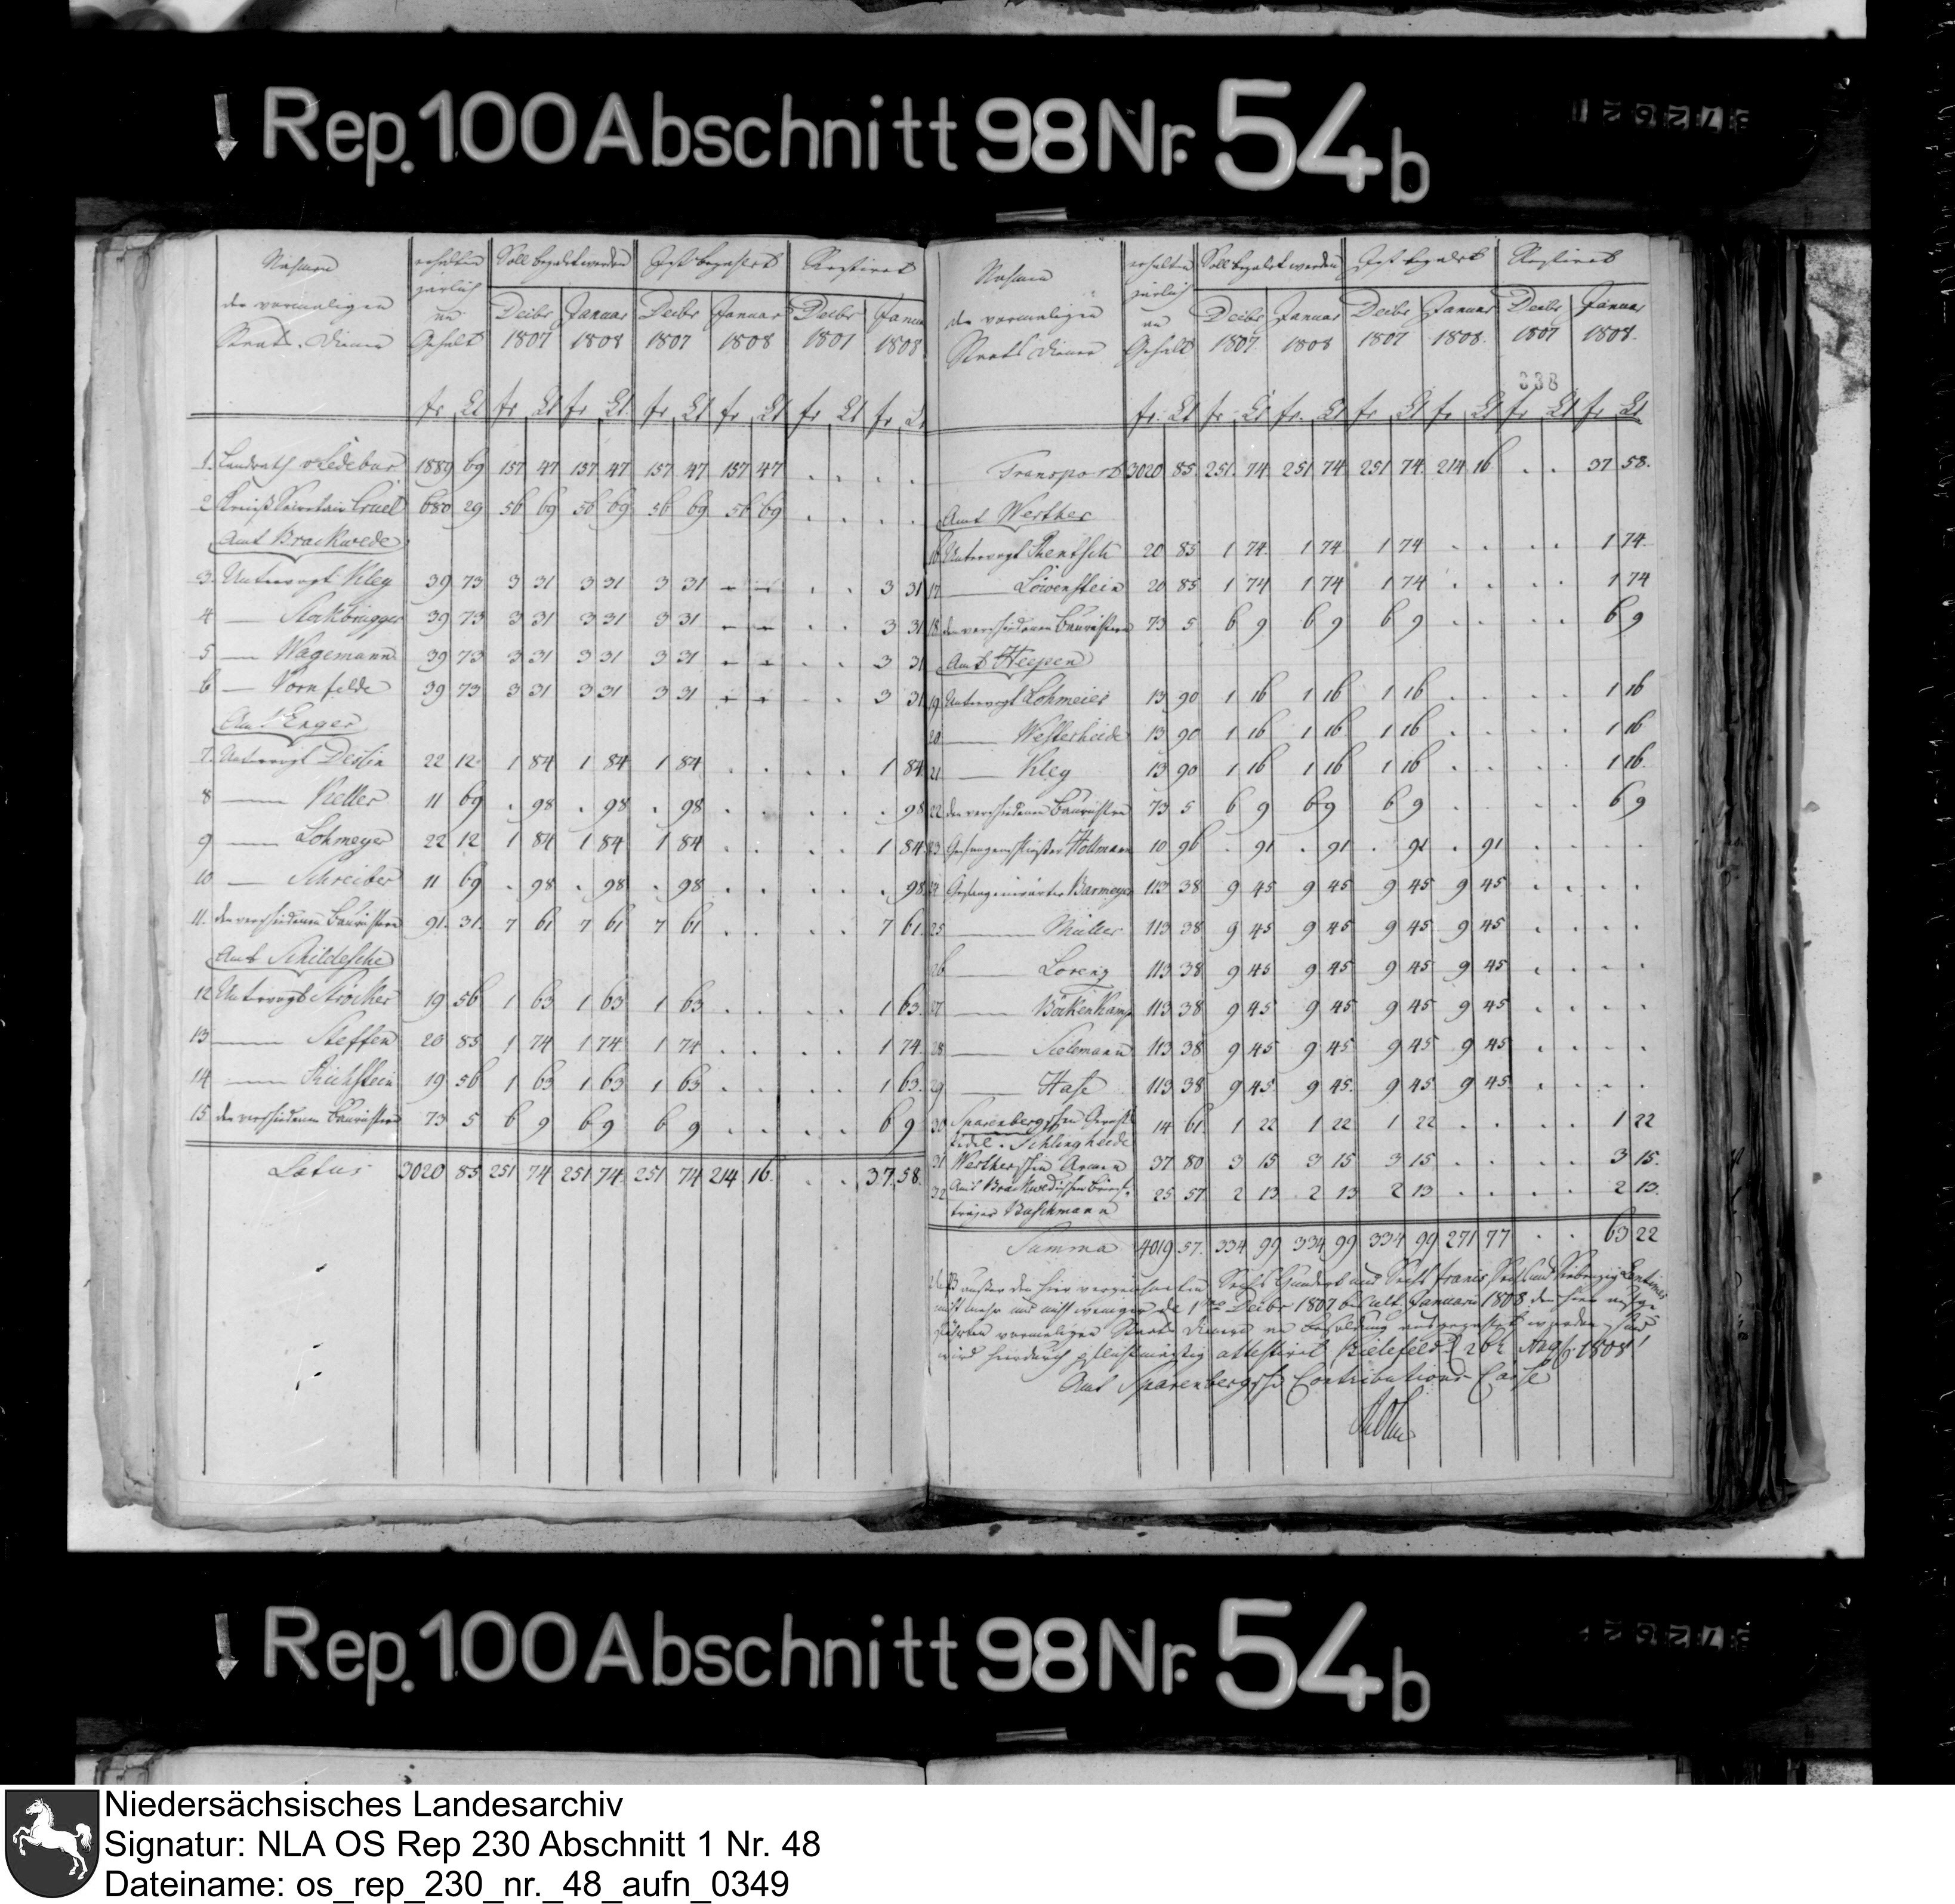 Rep. 100 Abschnitt 98 Nr. 54b
Nahmen der vormaligen Staats-Diener | erhalten järlich an Gehalt | Soll bezalet werden | Ist bezahlt | Restiret
Decbr 1807 | Januar 1808 | Decbr 1807 | Januar 1808 | Decbr 1807 | Januar 1808
fr Ct fr Ct fr Ct fr Ct fr Ct fr Ct fr Ct
1. Landrath v Ledebur 1889 69 157 47 157 47 157 47 157 47 . . . .
2 Kreiß Secretair Cruel 680 29 56 69 56 69 56 69 56 69 . . . .
Amt Brackwede
3. Untervogt Kley 39 73 3 31 3 31 3 31 - - . . 3 31
4 — Stockbrügger 39 73 3 31 3 31 3 31 - - . . 3 31
5 — Wagemann 39 73 3 31 3 31 3 31 - - . . 3 31
6 — Vornfelde 39 73 3 31 3 31 3 31 - - . . 3 31
Amt Enger
7. Untervogt 22 12 1 84 1 84 1 84 . . . . 1 84
8 — Keller 11 69 . 98 . 98 . 98 . . . . . 98
9 — Lohmeyer 22 12 1 84 1 84 1 84 . . . . 1 84
10 — Schreiber 11 69 . 98 . 98 . 98 . . . . . 98
11. den verschiedenen Bauerrichtern 91 31 7 61 7 61 7 61 . . . . 7 61
Amt Schildesche
12 Untervogt Ströcker 19 56 1 63 1 63 1 63 . . . . 1 63
13 — Steffen 20 85 1 74 1 74 1 74 . . . . 1 74
14 — 19 56 1 63 1 63 1 63 . . . . 1 63
15 den verschiedenen Bauerrichtern 73 5 6 9 6 9 6 9 . . . . 6 9
Latus 3020 85 251 74 251 74 251 74 214 16 . . 37 58
Nahmen der vormaligen Staats Diener | erhalten järlich an Gehalt | Soll bezalet werden | Ist bezalet | Restiret
Decbr 1807 | Januar 1808 | Decbr 1807 | Januar 1808 | Decbr 1807 | Januar 1808
338
fr. Ct fr Ct fr. Ct fr Ct fr Ct fr Ct fr Ct
Transport 3020 85 251 74 251 74 251 74 214 16 . . 37 58
Amt Werther
16 Untervogt 20 85 1 74 1 74 1 74 . . . . 1 74
17 — Löwenstein 20 85 1 74 1 74 1 74 . . . . 1 74
18 den verschiedenen Bauerrichtern 73 5 6 9 6 9 6 9 . . . . 6 9
Amt Heepen
19 Untervogt Lohmeier 13 90 1 16 1 16 1 16 . . . . 1 16
20 — Westerheide 13 90 1 16 1 16 1 16 . . . . 1 16
21 — Kley 13 90 1 16 1 16 1 16 . . . . 1 16
22 den verschiedenen Bauerrichtern 73 5 6 9 6 9 6 9 . . . . 6 9
23 Höllmann 10 96 . 91 . 91 . 91 . 91 . . . .
24 Gefangenwärter Barmeyer 113 38 9 45 9 45 9 45 9 45 . . . .
25 — Müller 113 38 9 45 9 45 9 45 9 45 . . . .
26 — Lorenz 113 38 9 45 9 45 9 45 9 45 . . . .
27 — Böckenkamp 113 38 9 45 9 45 9 45 9 45 . . . .
28 — Sielemann 113 38 9 45 9 45 9 45 9 45 . . . .
29 — Hase 113 38 9 45 9 45 9 45 9 45 . . . .
30 Sparenbergschen 14 61 1 22 1 22 1 22 . . . . 1 22
31 Wertherschen Armen 37 80 3 15 3 15 3 15 . . . . 3 15
32 Amt Brackwedischen Brief-
träger Buschmann 25 57 2 13 2 13 2 13 . . . . 2 13
Summa 4019 57 334 99 334 99 334 99 271 77 . . 63 22
Daß außer den hier verzeichneten Sechs Hundert und Sechs francs Sechs und Siebenzig Centimes
nicht mehr und nicht weniger de 1ten Decbr 1807 bis ult. Januarii 1808 den hier aufge-
führten vormaligen Staats Dienern an Besoldung ausgezahlt worden,
wird hierdurch pflichtmäßig attestiret Bielefeld d 2ten Aug. 1808
Amt Sparenbergsche Contributions-Casse
Rep. 100 Abschnitt 98 Nr. 54b
Niedersächsisches Landesarchiv
Signatur: NLA OS Rep 230 Abschnitt 1 Nr. 48
Dateiname: os_rep_230_nr._48_aufn_0349